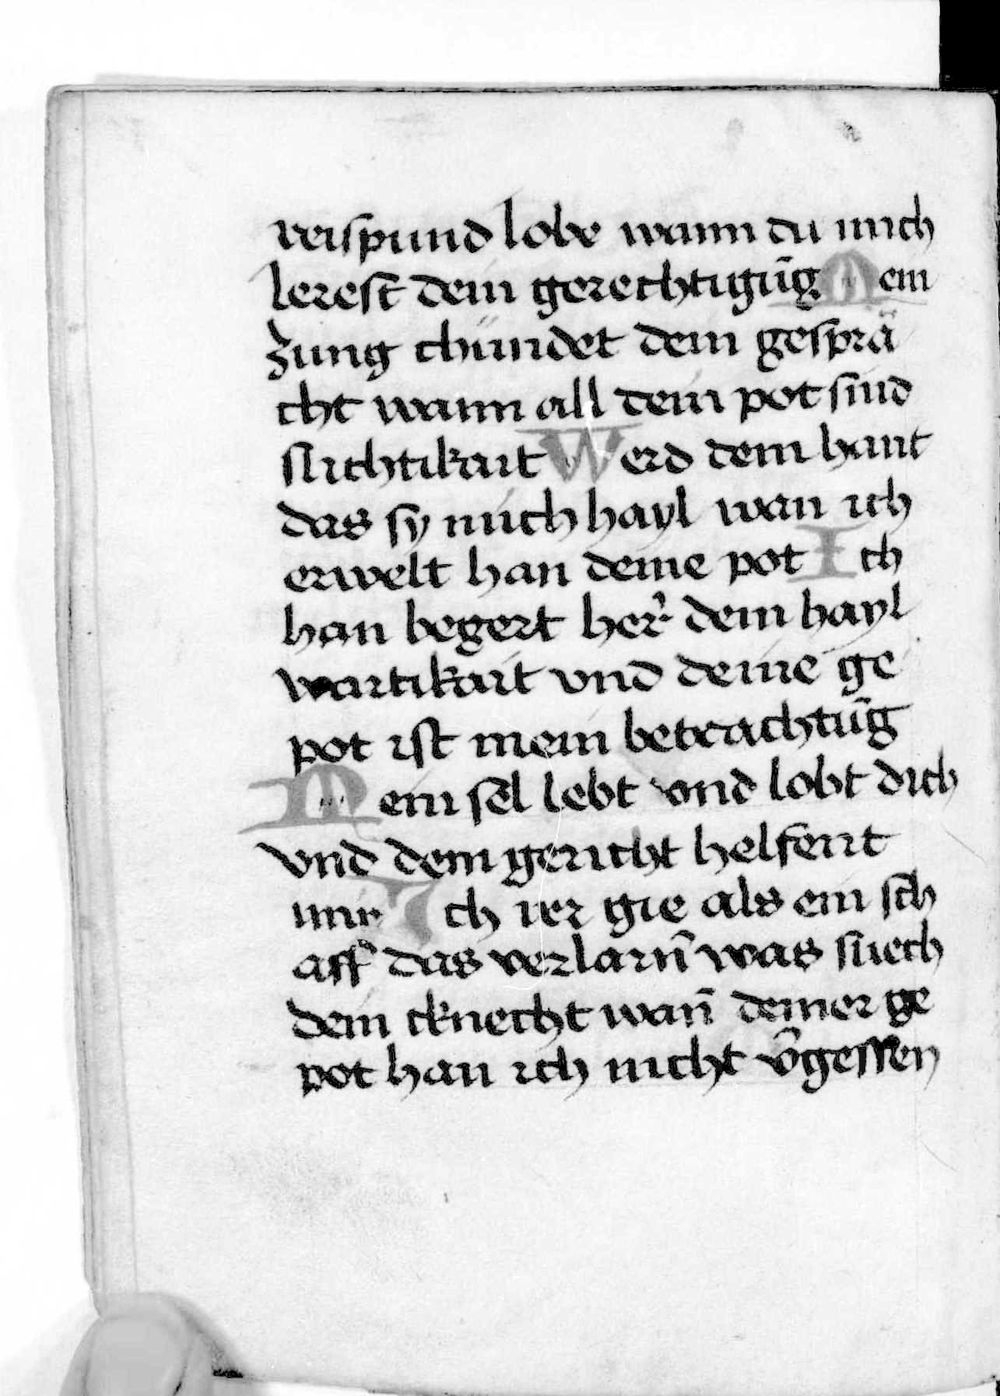 verspund lobe wann du mich
lerest dein gerechtigūg Mein
zung chündet dein gesprä
cht wann all dein pot sind
slichtikait Werd dein hant
das sy mich hayl wan ich
erwelt han deine pot Ich
han begert her᷑ dein hayl
wartikait vnd deine ge
pot ist mein betrachtūg
Mein sel lebt vnd lobt dich
vnd dein gericht helfent
mir Ich ier gie als ein sch
aff das verlarn̄ was suech
dein cknecht wan̄ deiner ge
pot han ich nicht v̄gessen